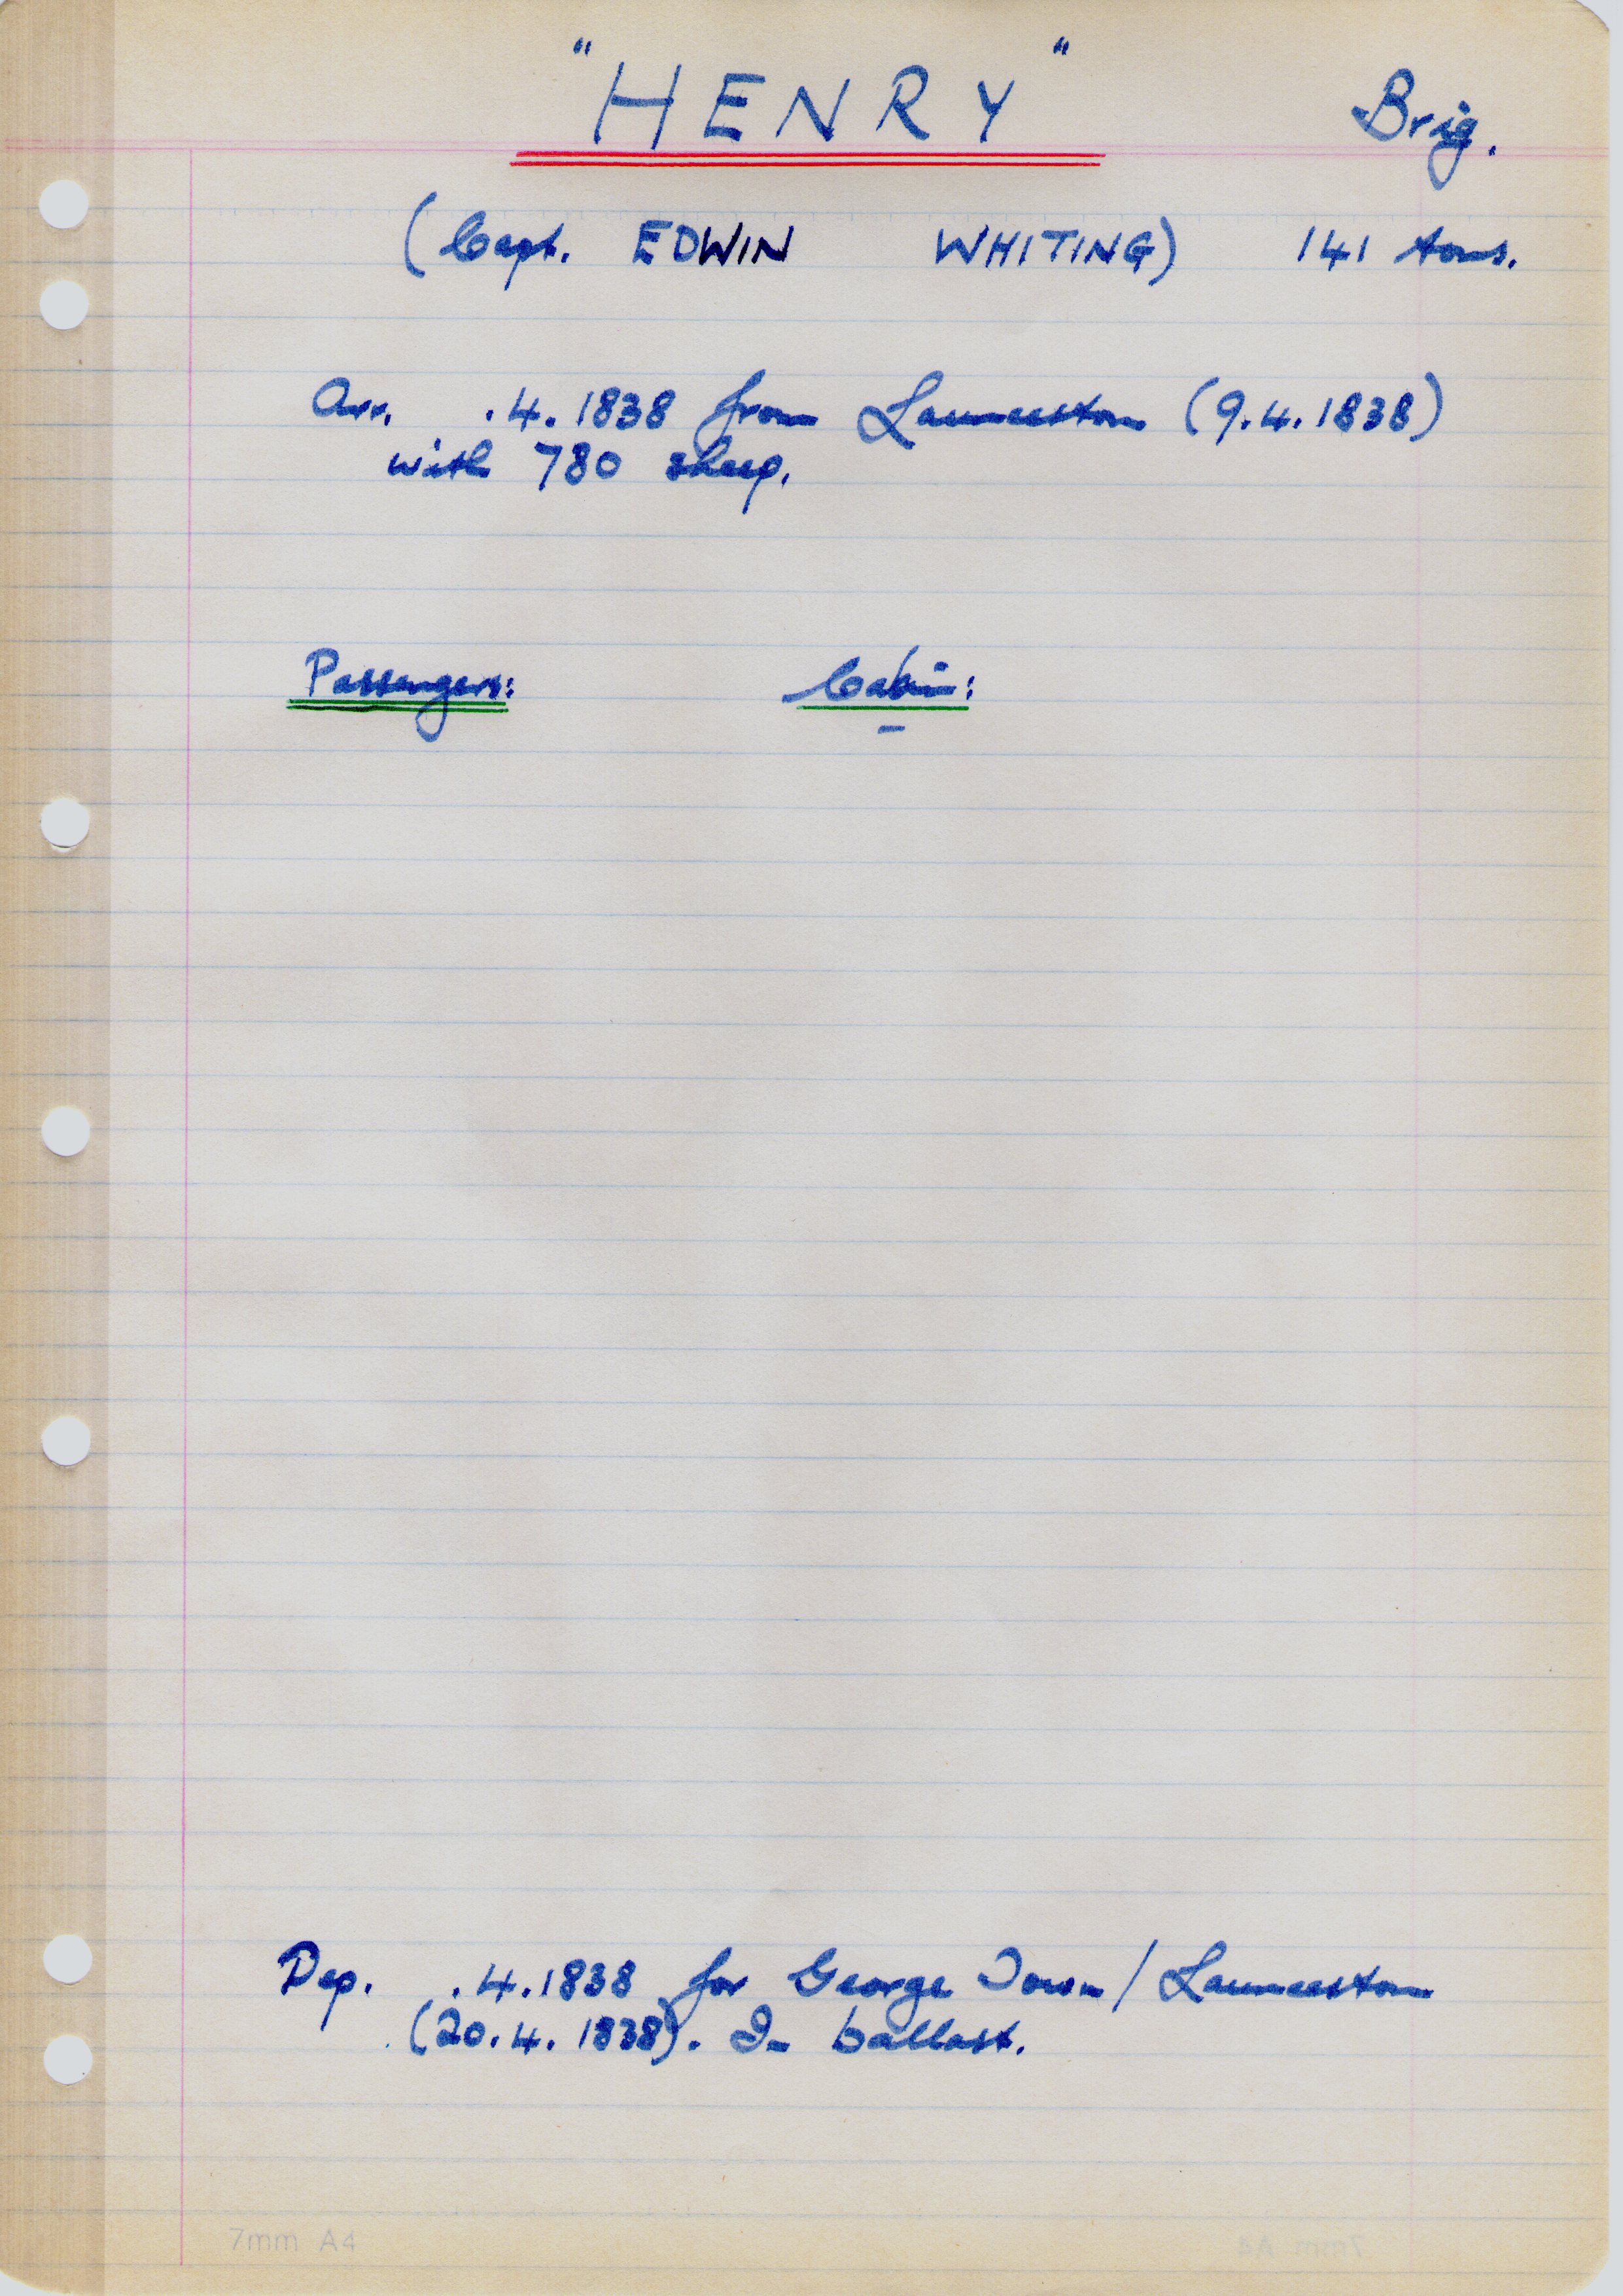 "HENRY" Brig.
(Capt. EDWIN WHITING) 141 tons.
Arr. .4.1838 from Launceston (9.4.1838)
with 780 sheep.
Passengers: Cabin:
–
Dep. .4.1838 for George Town / Launceston
(20.4.1838). In ballast.
7mm A4